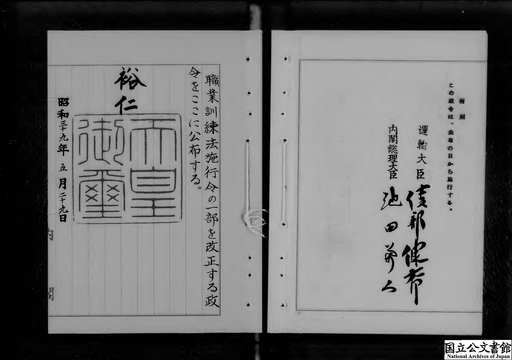 附則
この政令は、公布の日から施行する。
運輸大臣 綾部健太郎
内閣総理大臣 池田勇人
職業訓練法施行令の一部を改正する政
令をここに公布する。
裕仁
天皇
御璽
昭和三十九年五月二十九日
内閣
国立公文書館
National Archives of Japan